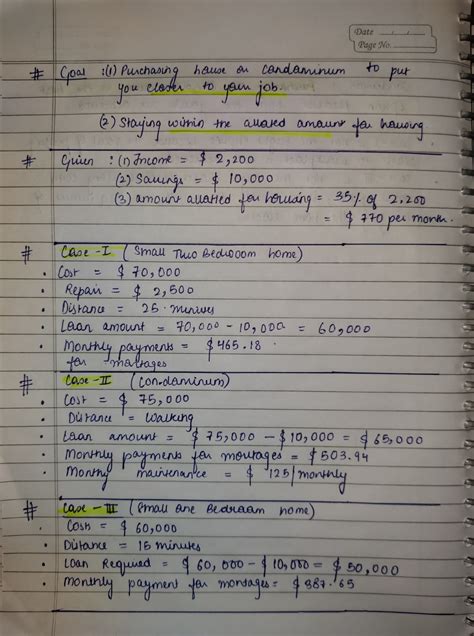 Date
Page No.
# Goal : (1) Purchasing house or condaminum to put
you closer to your job.
(2) Staying within the allated amount for housing
# Given : (1) Income = $ 2,200
(2) Savings = $ 10,000
(3) amount allatted for housing = 35% of 2,200
= $ 770 per month.
# Case - I (Small Two Bedroom home)
• Cost = $ 70,000
• Repair = $ 2,500
• Distance = 25 minutes
• Loan amount = 70,000 - 10,000 = 60,000
• Monthly payments = $465.18
for mortages
# Case - II (Condaminum)
• Cost = $ 75,000
• Distance = Walking
• Loan amount = $ 75,000 - $ 10,000 = $ 65,000
• Monthly payments for mortages = $ 503.94
• Monthy maintenance = $ 125/monthly
# Case - III (Small one Bedroom home)
• Cost = $ 60,000
• Distance = 15 minutes
• Loan Required = $ 60,000 - $ 10,000 = $ 50,000
• Monthly payment for mortages = $387.65